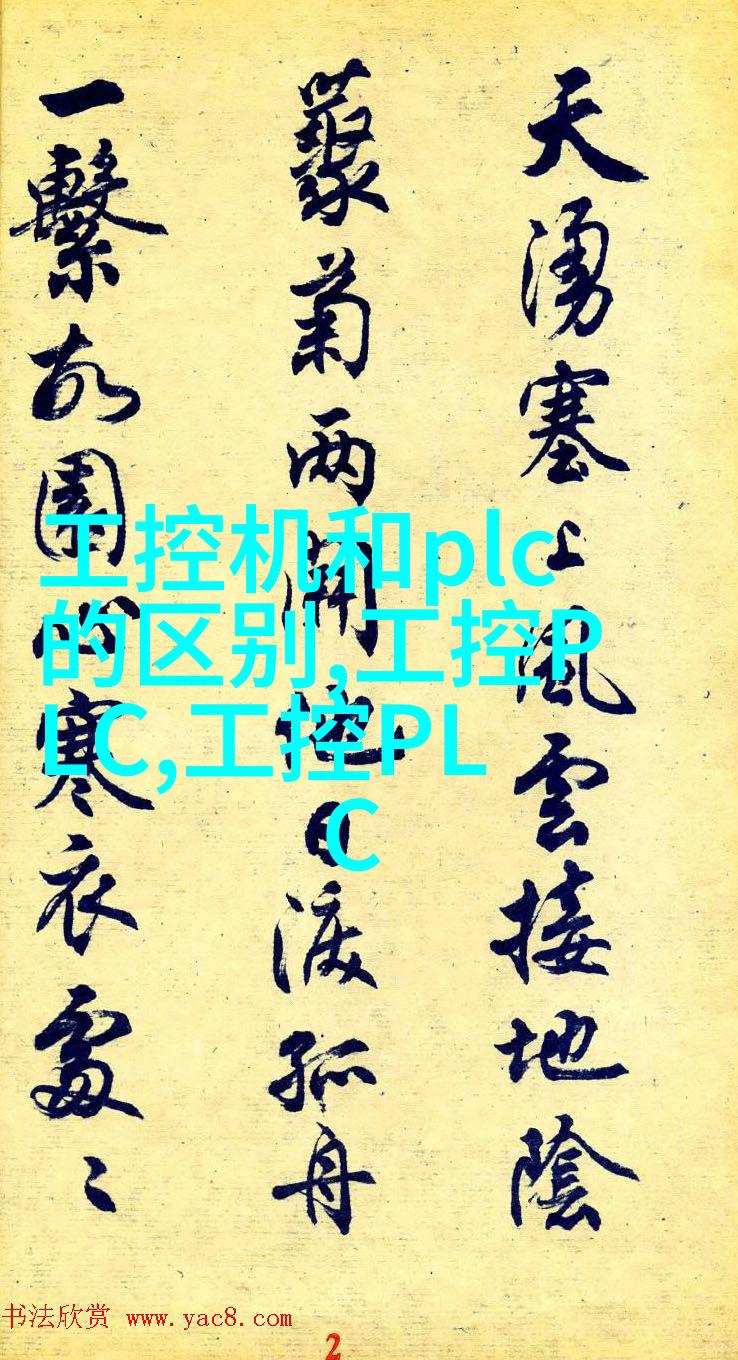 天湧塞上風雲接地陰
藂菊两開他日淚孤舟
一繫故園心寒衣處〻
工控机和plc
的区别,工控P
LC,工控PL
C
书法欣赏 www.yac8.com
2